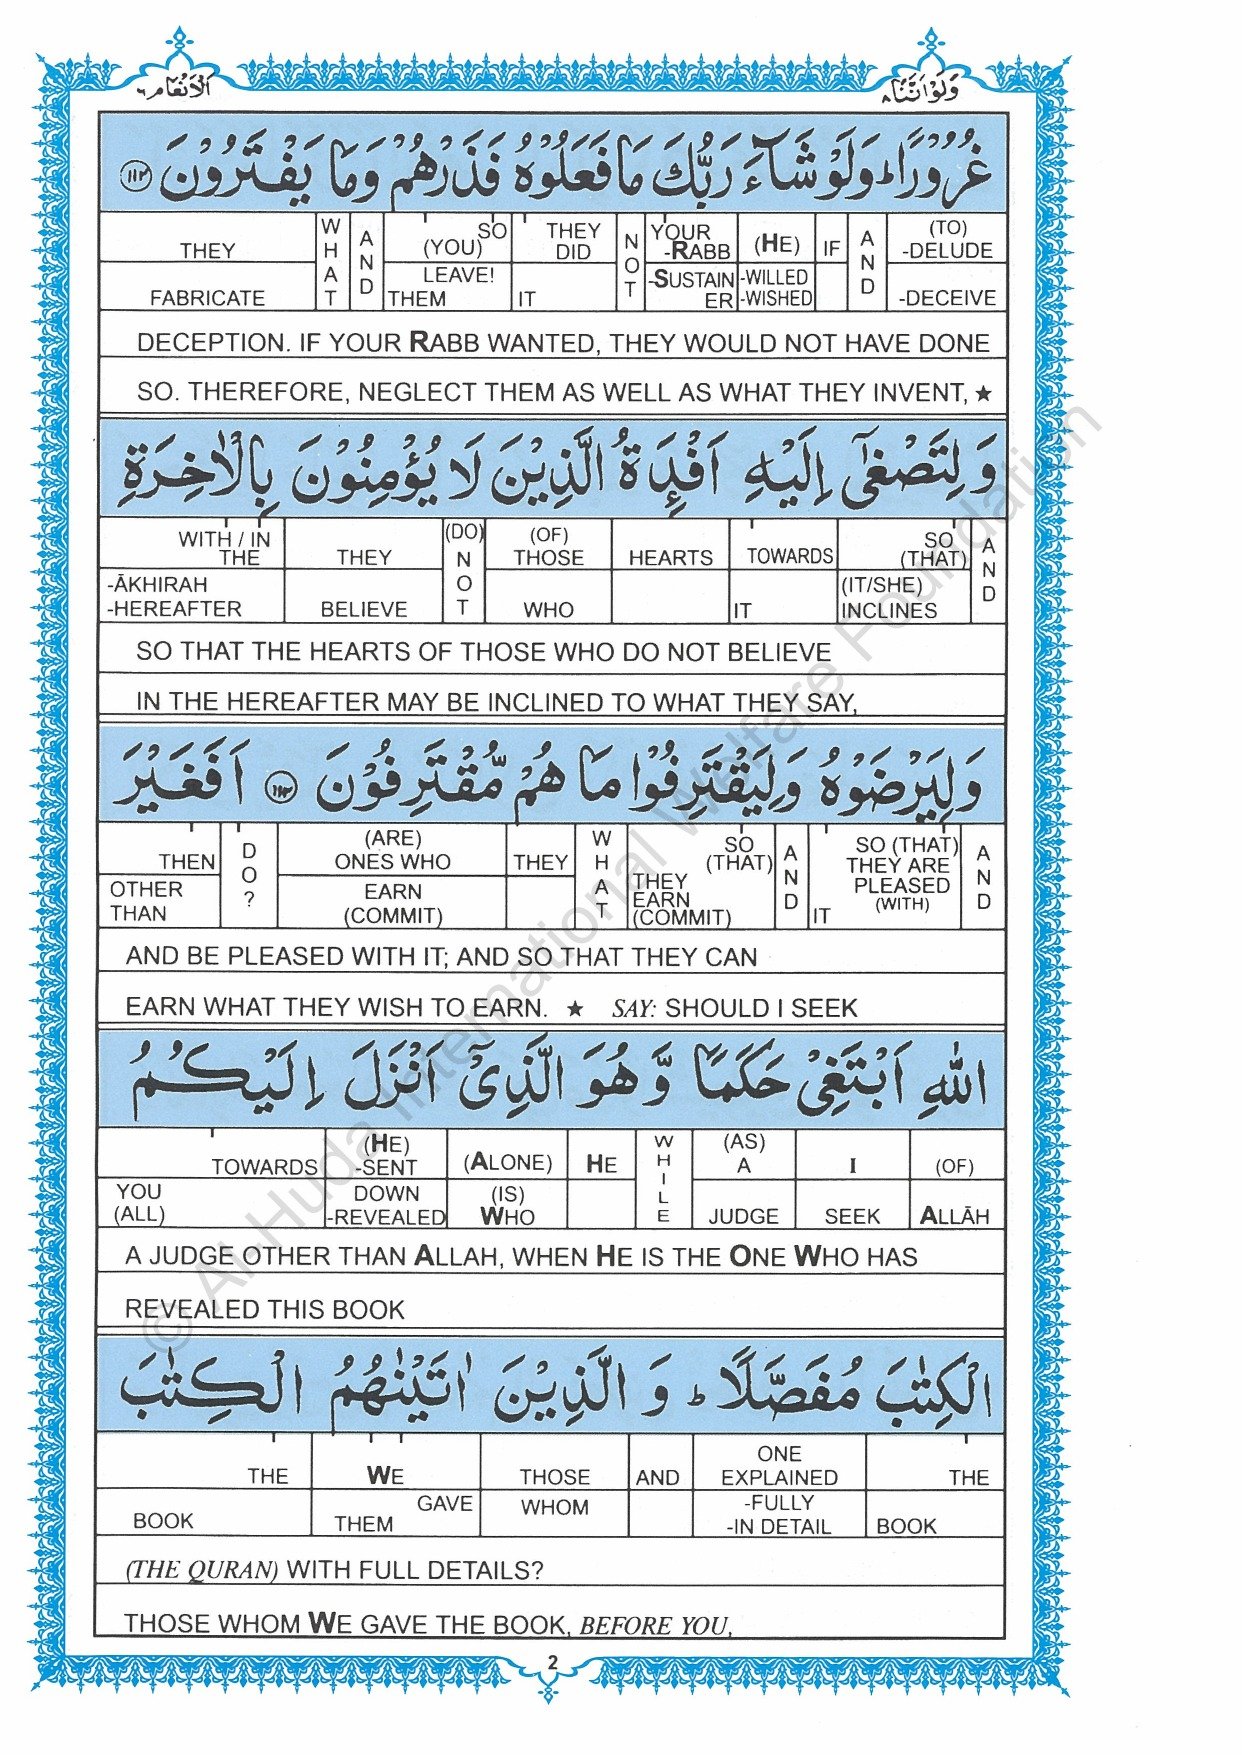 الانعام ٦
ولواننا ٨
غُرُوْرًا ؕ وَلَوْ شَآءَ رَبُّكَ مَا فَعَلُوْهُ فَذَرْهُمْ وَمَا يَفْتَرُوْنَ ﴿۱۱۲﴾
THEY WHAT AND SO (YOU) THEY DID NOT YOUR -RABB (HE) IF AND (TO) -DELUDE
FABRICATE LEAVE! THEM IT -SUSTAIN ER -WILLED -WISHED -DECEIVE
DECEPTION. IF YOUR RABB WANTED, THEY WOULD NOT HAVE DONE
SO. THEREFORE, NEGLECT THEM AS WELL AS WHAT THEY INVENT, ★
وَ لِتَصْغٰٓى اِلَيْهِ اَفْـِٕدَةُ الَّذِيْنَ لَا يُؤْمِنُوْنَ بِالْاٰخِرَةِ
WITH / IN THE THEY (DO) NOT (OF) THOSE HEARTS TOWARDS SO (THAT) AND
-ĀKHIRAH -HEREAFTER BELIEVE WHO IT (IT/SHE) INCLINES
SO THAT THE HEARTS OF THOSE WHO DO NOT BELIEVE
IN THE HEREAFTER MAY BE INCLINED TO WHAT THEY SAY,
وَ لِيَرْضَوْهُ وَ لِيَقْتَرِفُوْا مَا هُمْ مُّقْتَرِفُوْنَ ﴿۱۱۳﴾ اَفَغَيْرَ
THEN DO? (ARE) ONES WHO THEY WHAT SO (THAT) AND SO (THAT) THEY ARE PLEASED (WITH) AND
OTHER THAN EARN (COMMIT) THEY EARN (COMMIT) IT
AND BE PLEASED WITH IT; AND SO THAT THEY CAN
EARN WHAT THEY WISH TO EARN. ★ SAY: SHOULD I SEEK
اللّٰهِ اَبْتَغِيْ حَكَمًا وَّ هُوَ الَّذِيْۤ اَنْزَلَ اِلَيْكُمُ
TOWARDS (HE) -SENT (ALONE) HE WHILE (AS) A I (OF)
YOU (ALL) DOWN -REVEALED (IS) WHO JUDGE SEEK ALLĀH
A JUDGE OTHER THAN ALLAH, WHEN HE IS THE ONE WHO HAS
REVEALED THIS BOOK
الْكِتٰبَ مُفَصَّلًا ؕ وَ الَّذِيْنَ اٰتَيْنٰهُمُ الْكِتٰبَ
THE WE THOSE AND ONE EXPLAINED THE
BOOK GAVE THEM WHOM -FULLY -IN DETAIL BOOK
(THE QURAN) WITH FULL DETAILS?
THOSE WHOM WE GAVE THE BOOK, BEFORE YOU,
2
© Al-Huda International Welfare Foundation